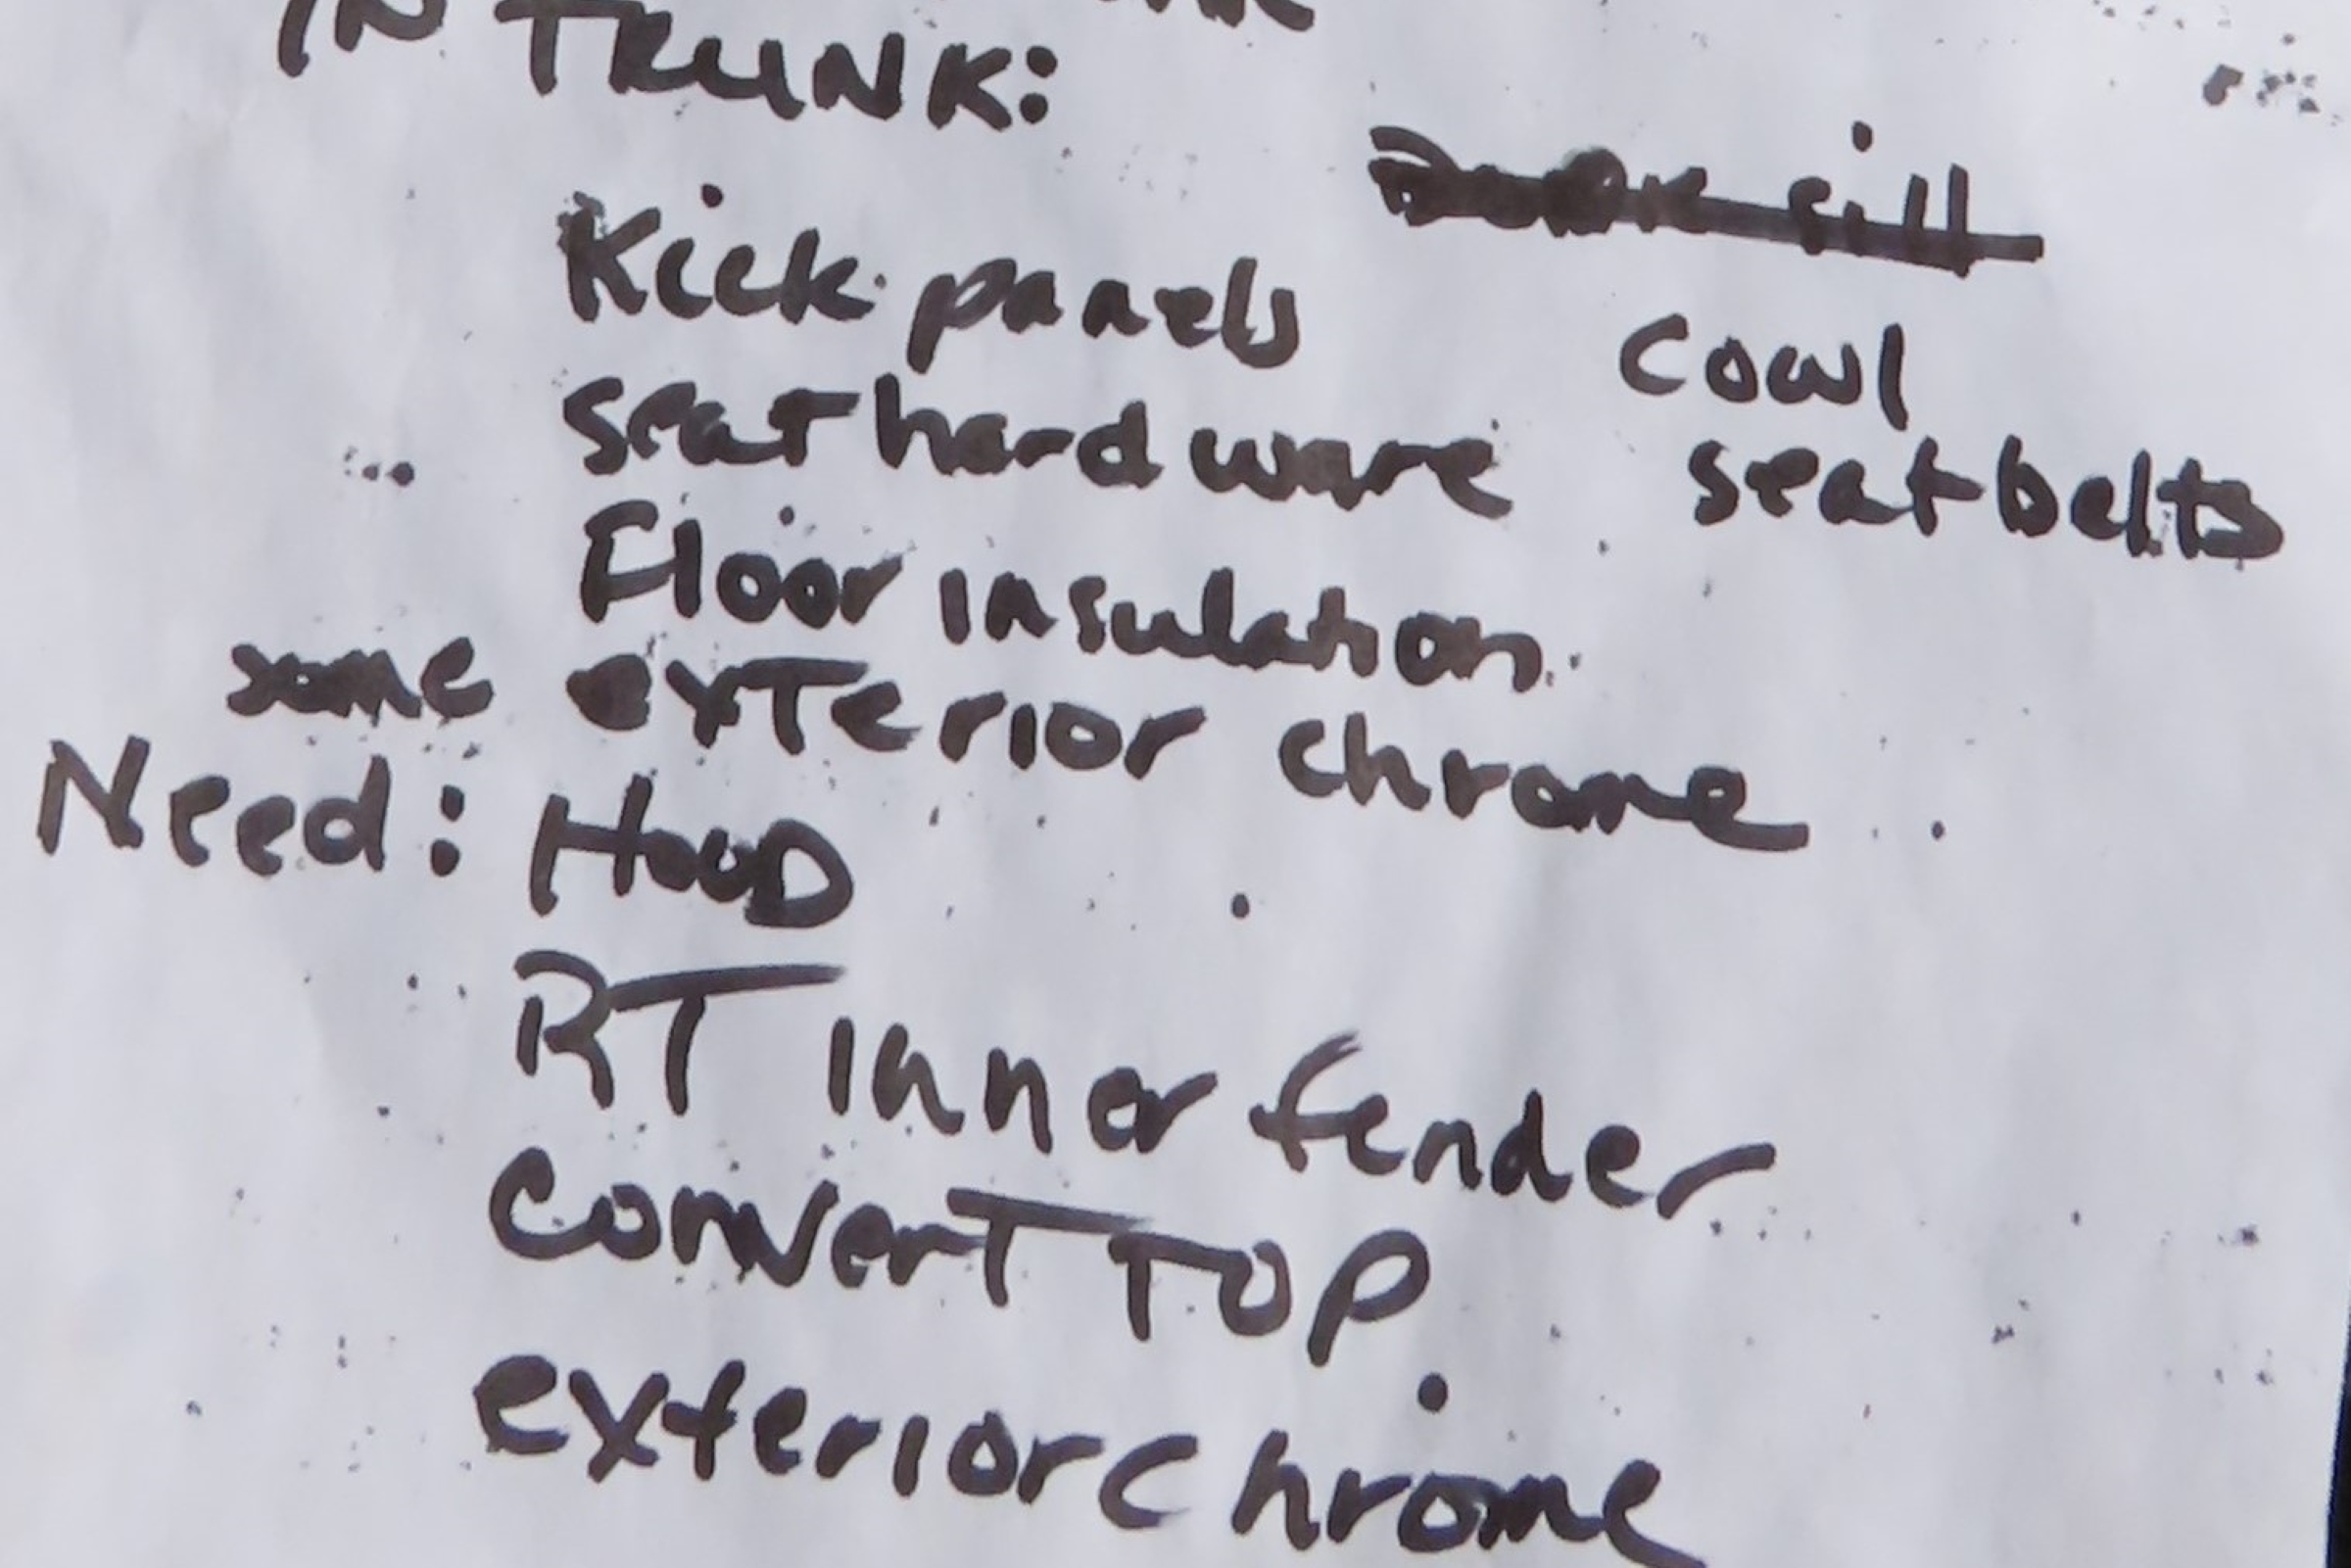 IN TRUNK:
Kick panels
seat hardware
Floor insulation
some exterior chrome
sill
cowl
seat belts
Need: HOOD
RT inner fender
convert TOP
exterior chrome